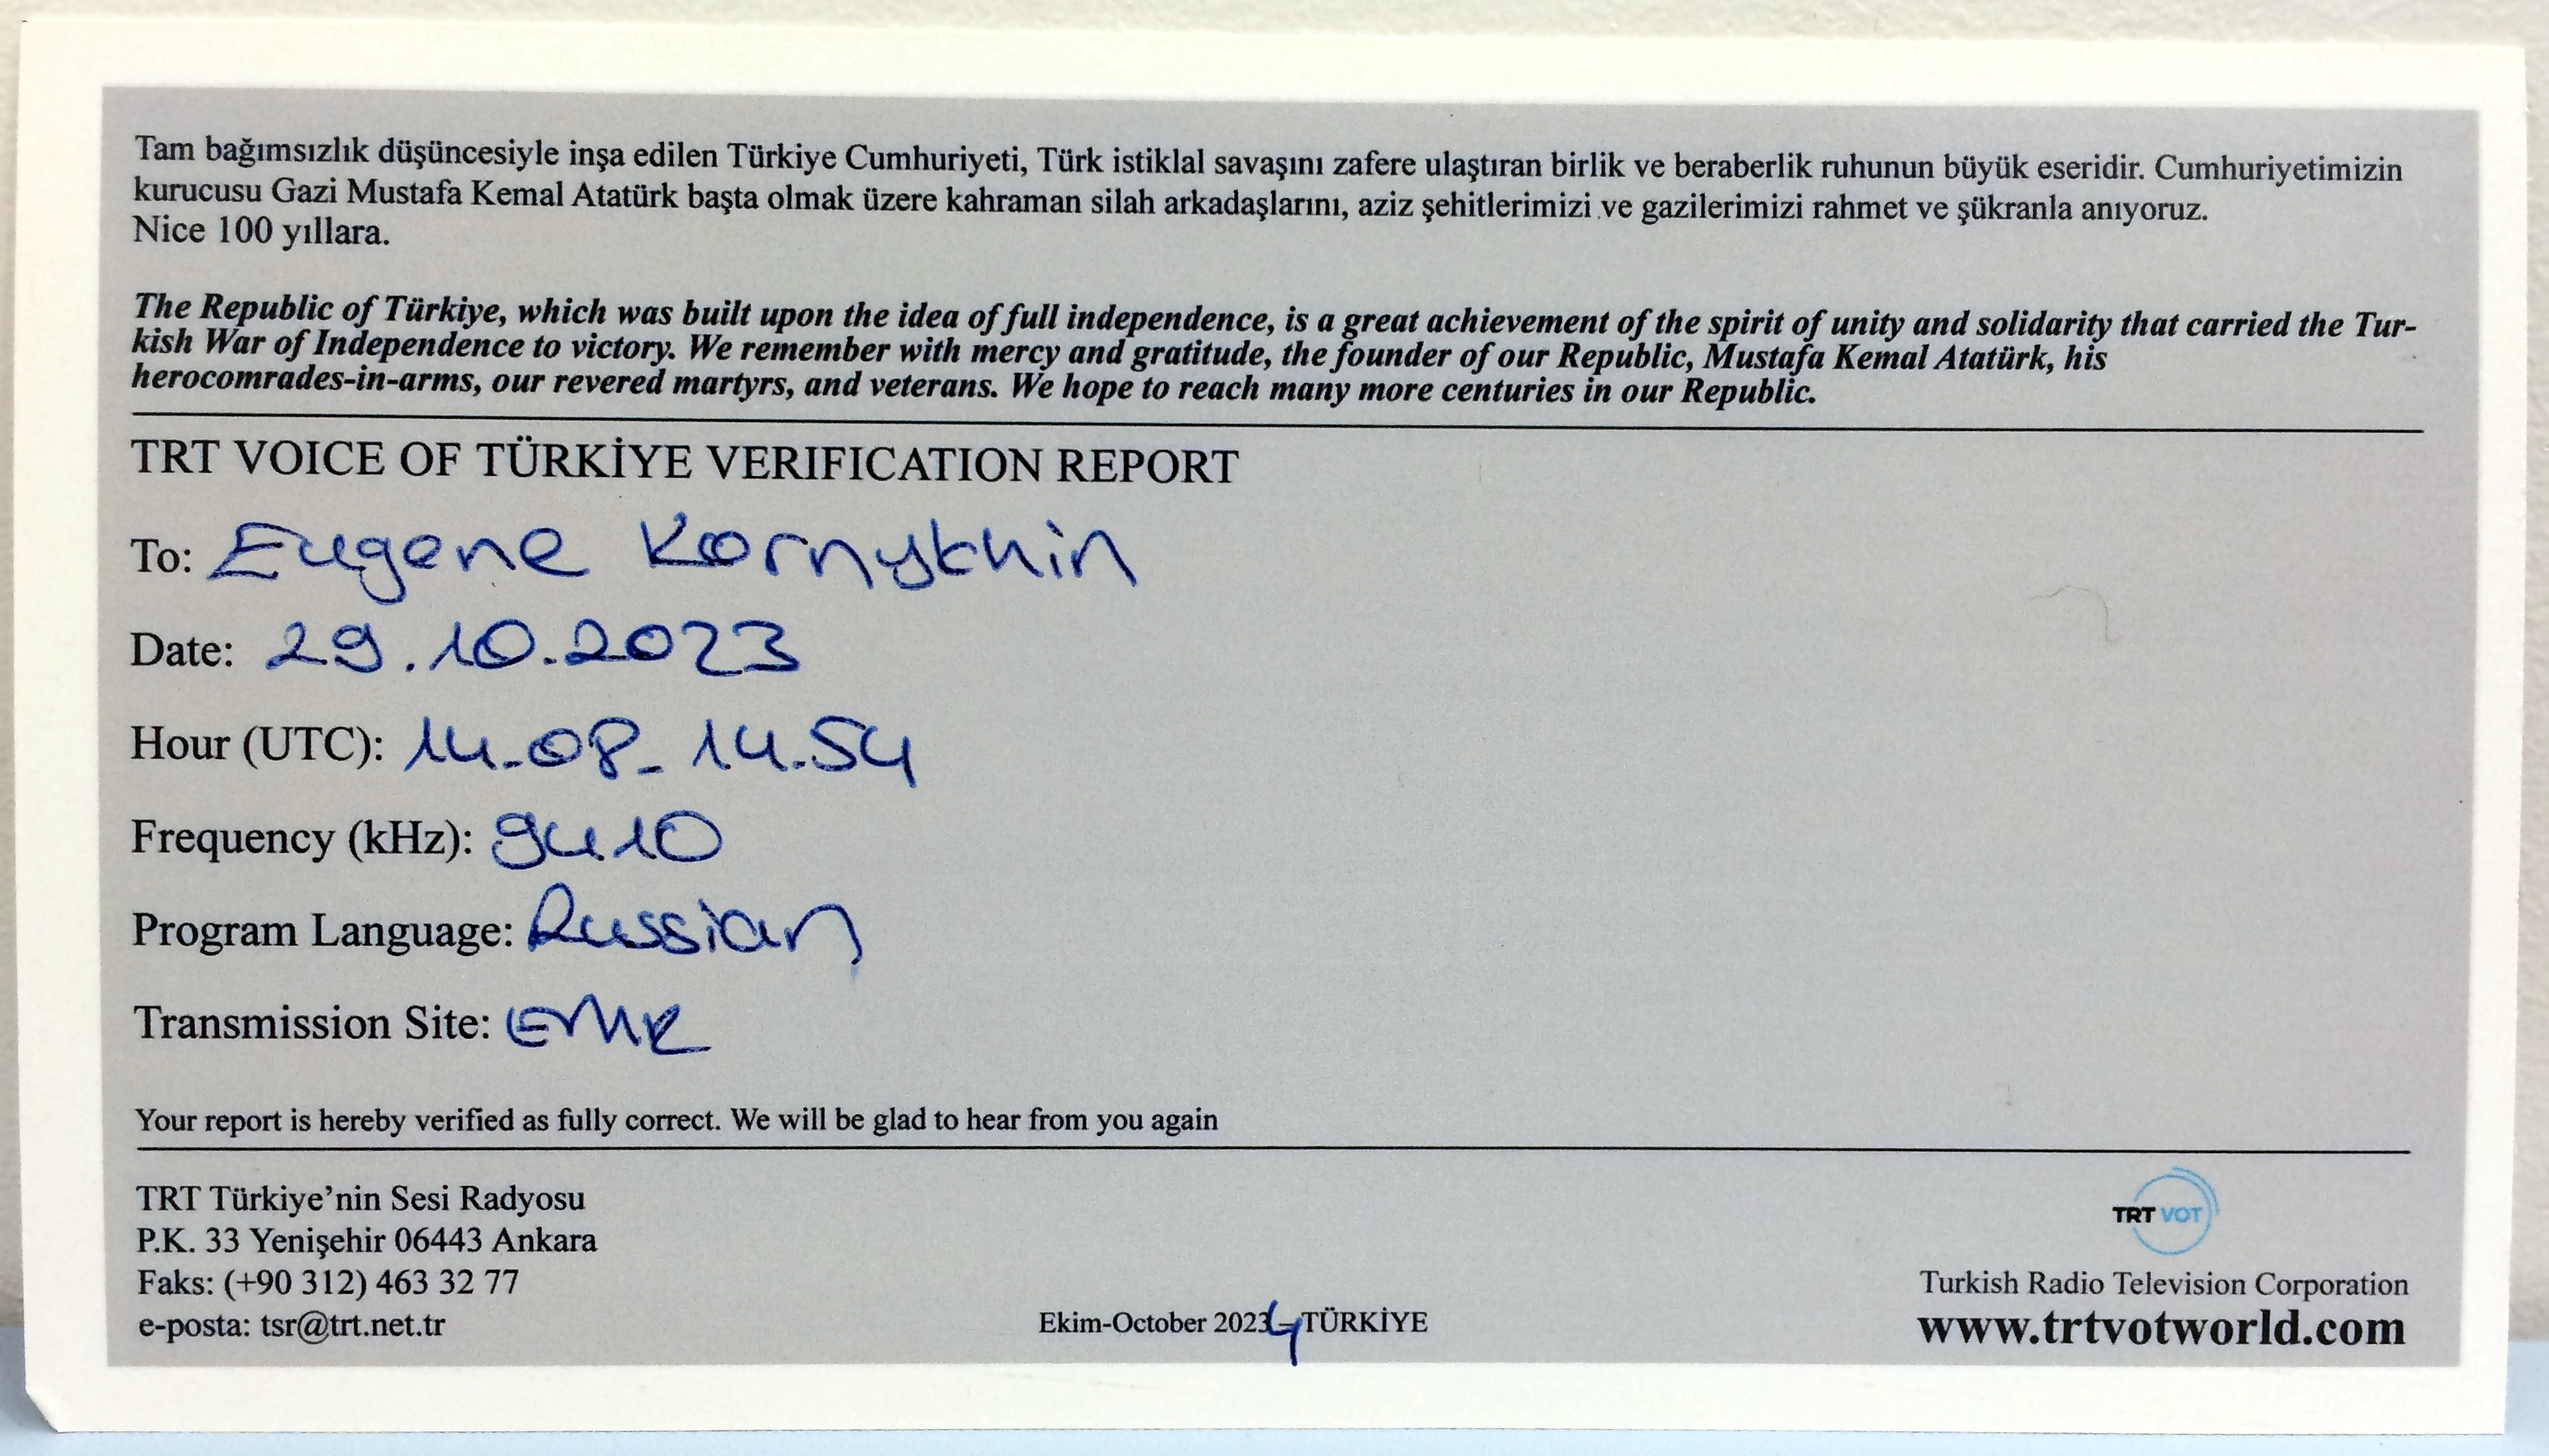 Tam bağımsızlık düşüncesiyle inşa edilen Türkiye Cumhuriyeti, Türk istiklal savaşını zafere ulaştıran birlik ve beraberlik ruhunun büyük eseridir. Cumhuriyetimizin
kurucusu Gazi Mustafa Kemal Atatürk başta olmak üzere kahraman silah arkadaşlarını, aziz şehitlerimizi ve gazilerimizi rahmet ve şükranla anıyoruz.
Nice 100 yıllara.
The Republic of Türkiye, which was built upon the idea of full independence, is a great achievement of the spirit of unity and solidarity that carried the Tur-
kish War of Independence to victory. We remember with mercy and gratitude, the founder of our Republic, Mustafa Kemal Atatürk, his
herocomrades-in-arms, our revered martyrs, and veterans. We hope to reach many more centuries in our Republic.
TRT VOICE OF TÜRKİYE VERIFICATION REPORT
To: Eugene Kornykhin
Date: 29.10.2023
Hour (UTC): 14.08 - 14.54
Frequency (kHz): 9410
Program Language: Russian
Transmission Site: EMR
Your report is hereby verified as fully correct. We will be glad to hear from you again
TRT Türkiye'nin Sesi Radyosu
P.K. 33 Yenişehir 06443 Ankara
Faks: (+90 312) 463 32 77
e-posta: tsr@trt.net.tr
Ekim-October 2023 4 TÜRKİYE
TRT VOT
Turkish Radio Television Corporation
www.trtvotworld.com